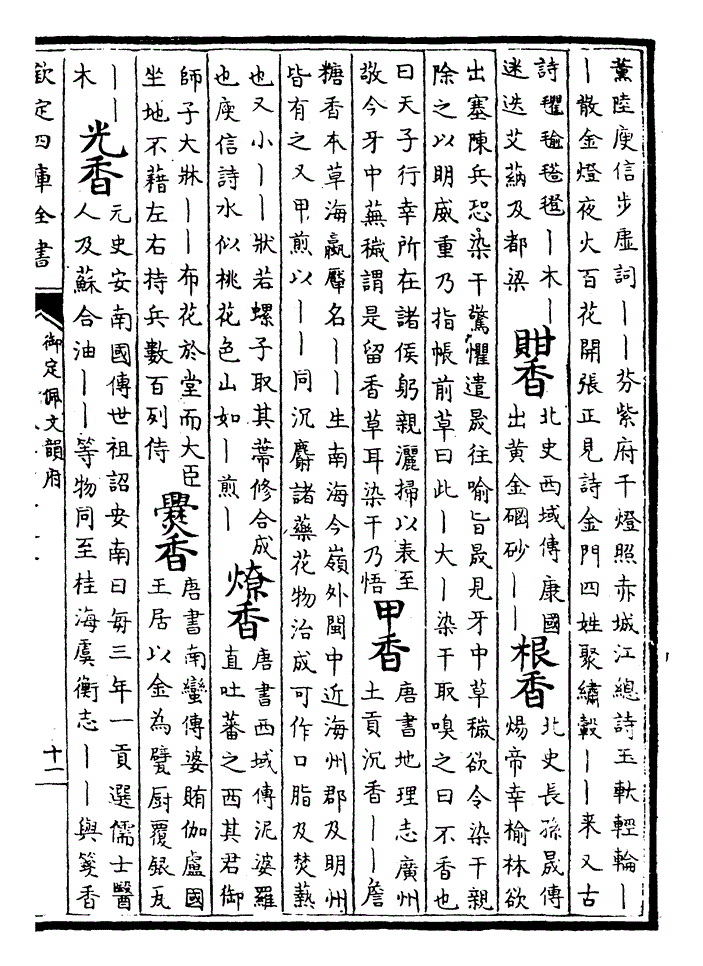 薰陸庾信步虛詞丨丨芬紫府千燈照赤城江總詩玉軑輕輪丨
丨散金燈夜火百花開張正見詩金門四姓聚繡轂丨丨来又古
詩氍毹毾㲪丨木丨
迷迭艾蒳及都梁
香
北史西域傳康國
出黄金硇砂丨丨
根香
北史長孫晟傳
煬帝幸榆林欲
出塞陳兵恐染干驚懼遣晟往喻旨晟見牙中草穢欲令染干親
除之以明威重乃指帳前草曰此丨大丨染干取嗅之曰不香也
曰天子行幸所在諸侯躬親灑掃以表至
敬今牙中蕪穢謂是留香草耳染干乃悟
甲香
唐書地理志廣州
土貢沉香丨丨詹
糖香本草海蠃厴名丨丨生南海今嶺外閩中近海州郡及明州
皆有之又甲煎以丨丨同沉麝諸藥花物治成可作口脂及焚爇
也又小丨丨狀若螺子取其蔕修合成
也庾信詩水似桃花色山如丨煎丨
燎香
唐書西域傳泥婆羅
直吐蕃之西其君御
師子大牀丨丨布花於堂而大臣
坐地不藉左右持兵數百列侍
爨香
唐書南蠻傳婆賄伽盧國
王居以金為甓厨覆銀瓦
丨丨
木
光香
元史安南國傳世祖詔安南曰每三年一貢選儒士醫
人及蘇合油丨丨等物同至桂海虞衡志丨丨與箋香
欽定四庫全書
御定佩文韻府
十一